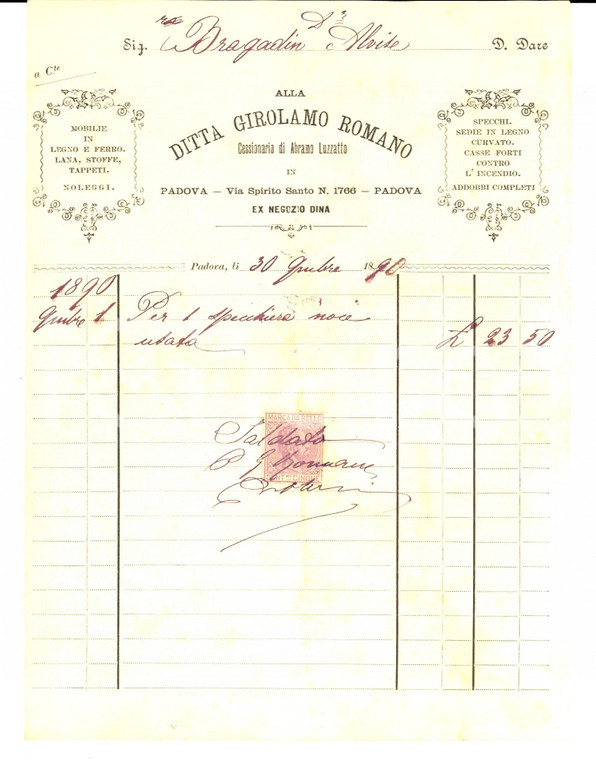 Sig.ra Bragadin Dr Alvise D. Dare
a Cto
ALLA
DITTA GIROLAMO ROMANO
Cessionario di Abramo Luzzatto
IN
PADOVA — Via Spirito Santo N. 1766 — PADOVA
EX NEGOZIO DINA
MOBILIE
IN
LEGNO E FERRO.
LANA, STOFFE,
TAPPETI.
NOLEGGI.
SPECCHI.
SEDIE IN LEGNO
CURVATO.
CASSE FORTI
CONTRO
L'INCENDIO.
ADDOBBI COMPLETI
Padova, li 30 9mbre 1890
1890
9mbre 1 Per 1 specchiera noce
usata L 23 50
MARCA DA BOLLO
Saldato
P G Romano
CENT.MI CINQUE